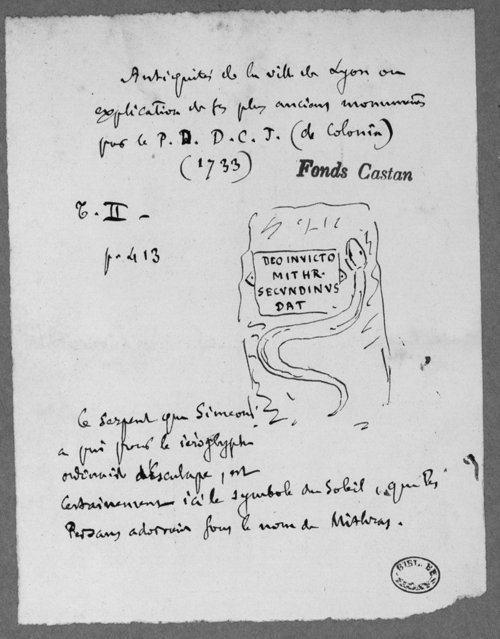 Antiquités de la ville de Lyon ou
explication de ses plus anciens monuments
par le P. D. D. C. J. (de Colonia)
(1733)
Fonds Castan
T. II -
p. 413
DEO INVICTO
MITHR.
SECVNDINVS
DAT
Ce serpent que Simeoni
a pris pour le iéroglyphe
ordinaire d'Esculape, est
certainement ici le symbole du Soleil, que les
Persans adoroient sous le nom de Mithras.
BIBL. DE